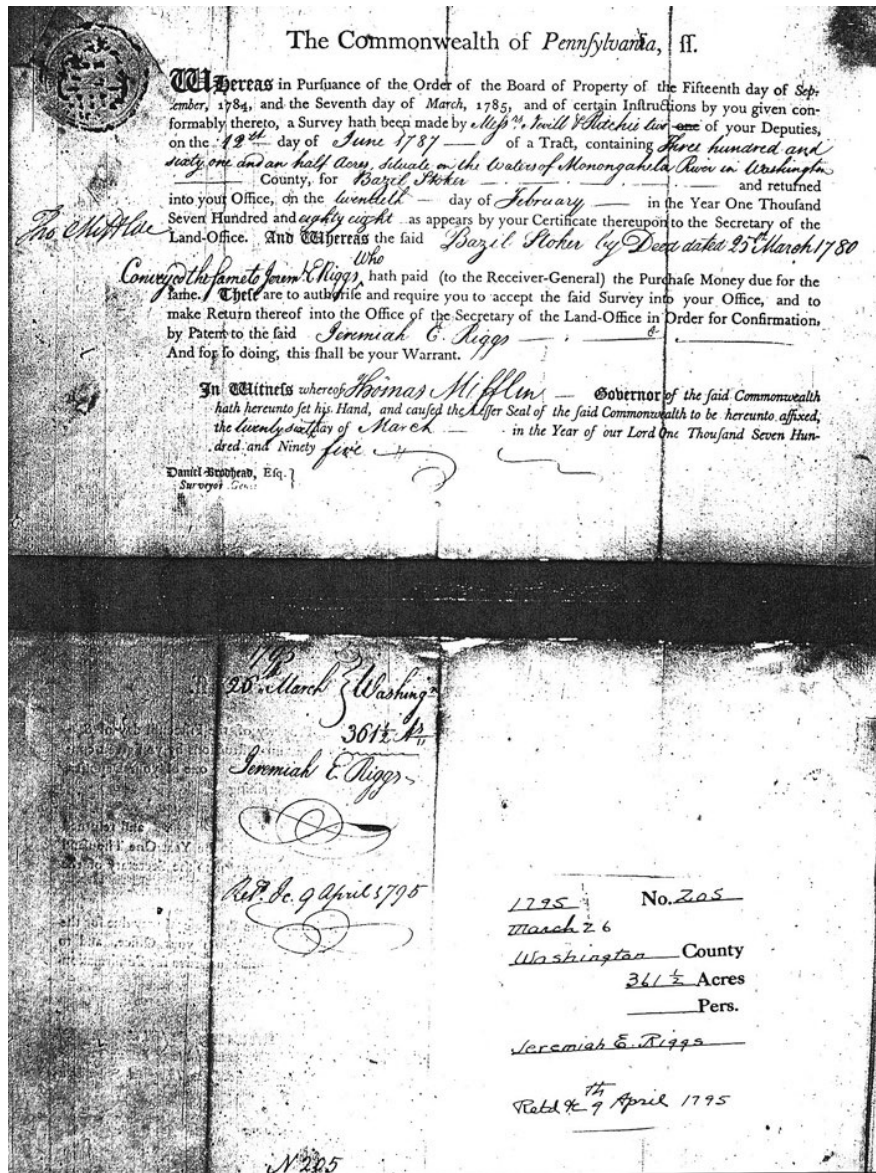 The Commonwealth of Pennſylvania, ſſ.
WHereas in Purſuance of the Order of the Board of Property of the Fifteenth day of Sep-
tember, 1784, and the Seventh day of March, 1785, and of certain Inſtructions by you given con-
formably thereto, a Survey hath been made by Meſsrs. Nevill & Ritchie two one of your Deputies,
on the 12th day of June 1787 — of a Tract, containing Three hundred and
sixty one and an half Acres, situate on the Waters of Monongahela River in Washington
County, for Bazil Stoker — and returned
into your Office, on the twentieth — day of February — in the Year One Thousand
Seven Hundred and eighty eight as appears by your Certificate thereupon to the Secretary of the
Land-Office. And Whereas the said Bazil Stoker by Deed dated 25th March 1780
Who
Conveyed the same to Jerem. E. Riggs, hath paid (to the Receiver-General) the Purchaſe Money due for the
ſame. Theſe are to authoriſe and require you to accept the ſaid Survey into your Office, and to
make Return thereof into the Office of the Secretary of the Land-Office in Order for Confirmation,
by Patent to the ſaid Jeremiah E. Riggs —
And for ſo doing, this ſhall be your Warrant.
In Witneſs whereof Thomas Mifflin — Governor of the ſaid Commonwealth
hath hereunto ſet his Hand, and cauſed the Leſſer Seal of the ſaid Commonwealth to be hereunto affixed,
the twenty sixth day of March — in the Year of our Lord One Thouſand Seven Hun-
dred and Ninety five
Daniel Brodhead, Esq. }
Surveyor
1795
26th March } Washingn.
361½ As
Jeremiah E. Riggs
9 April 1795
N 205
1795 No. 205
March 26
Washington County
361 ½ Acres
Pers.
Jeremiah E. Riggs
Retd &c 9th April 1795